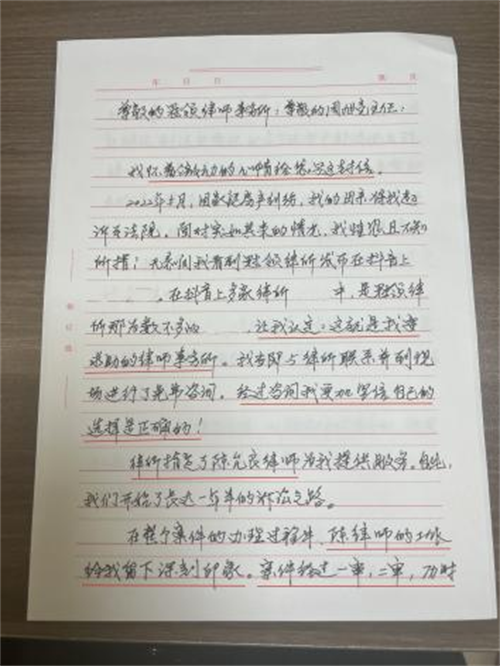 年 月 日 第 页
尊敬的冠领律师事务所：尊敬的周旭亮主任：
我怀着激动的心情给您写这封信。
2022年5月，因家庭房产纠纷，我的因亲将我起
诉至法院。面对突如其来的情况，我惶恐且不知
所措！无意间我看到冠领律所发布在抖音上
，在抖音上多家律所 中，是冠领律
所那为数不多的 让我认定：这就是我要
求助的律师事务所。我当即与律所联系并到现
场进行了免费咨询。经过咨询我更加坚信自己的
选择是正确的！
律所指定了陈允良律师为我提供服务。自此，
我们开始了长达一年半的诉讼之路。
在整个案件的办理过程中，陈律师的工作
给我留下深刻印象。案件经过一审，二审，历时